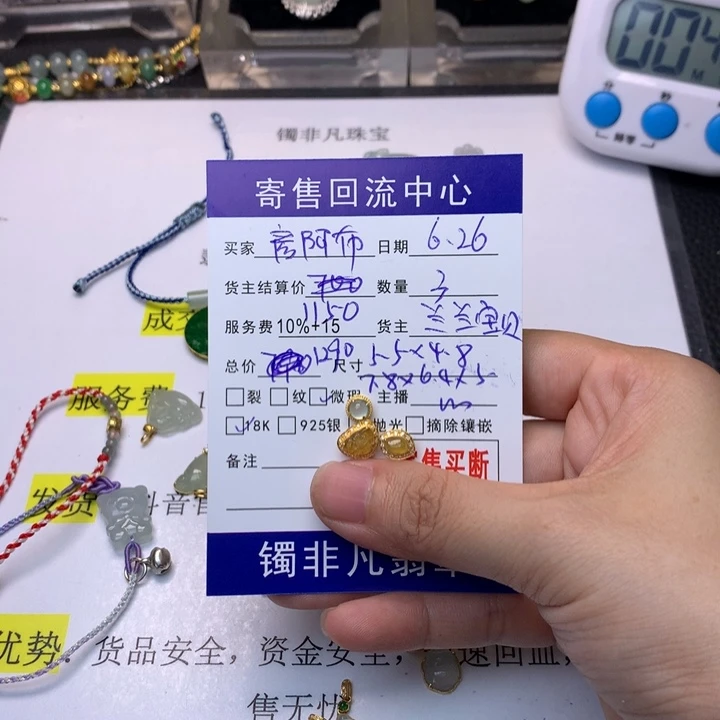 004
M
分
秒
镯非凡珠宝
寄售回流中心
买家 房阿布 日期 6.26
货主结算价 数量 3
1150
服务费10%+15 货主 兰兰宝贝
总价 1290 尺寸 5.5×4.8
7.8×6.4×5
裂 纹 微瑕 主播
18K 925银 抛光 摘除镶嵌
备注
售买断
镯非凡翡翠
成交
服务费
发货
优势:货品安全,资金安全,
售无忧